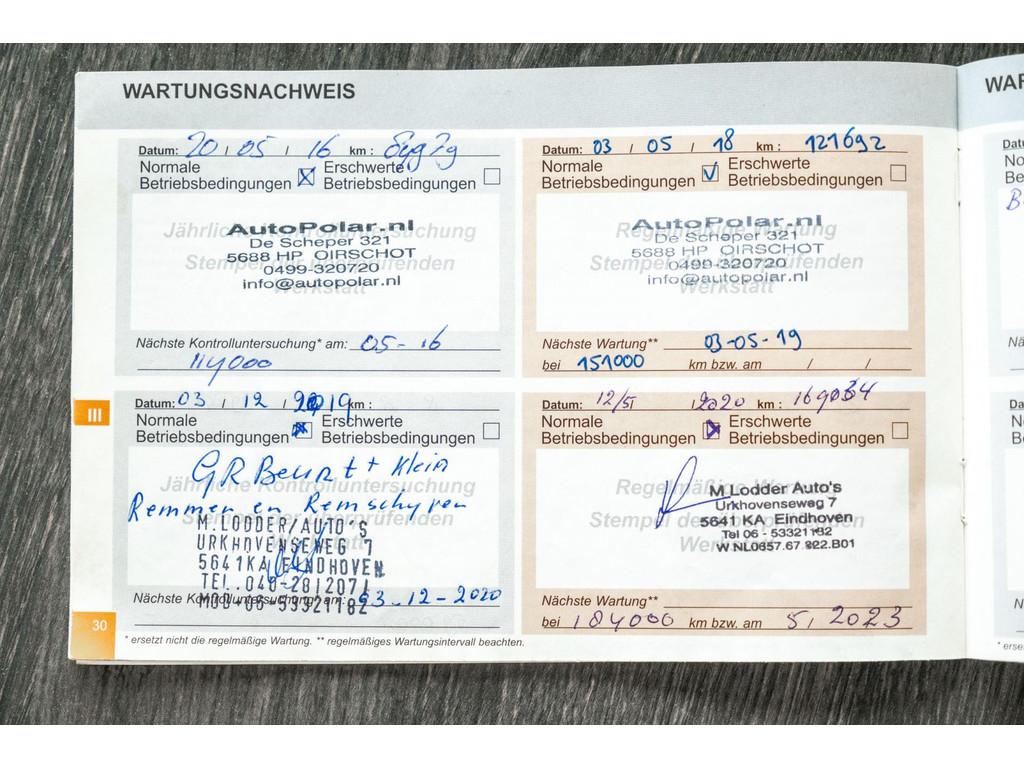 WARTUNGSNACHWEIS
Datum: 20 / 05 / 16 km :
Normale Betriebsbedingungen
Erschwerte Betriebsbedingungen
Jährliche Kontrolluntersuchung
Stempel der überprüfenden
AutoPolar.nl
De Scheper 321
5688 HP OIRSCHOT
0499-320720
info@autopolar.nl
Nächste Kontrolluntersuchung* am: 05-16
114000
Datum: 03 / 05 / 18 km : 121692
Normale Betriebsbedingungen
Erschwerte Betriebsbedingungen
Regelmäßige Wartung
Stempel der überprüfenden
Werkstatt
AutoPolar.nl
De Scheper 321
5688 HP OIRSCHOT
0499-320720
info@autopolar.nl
Nächste Wartung** 03-05-19
bei 151000 km bzw. am / /
III
Datum: 03 / 12 / 2019 km :
Normale Betriebsbedingungen
Erschwerte Betriebsbedingungen
Jährliche Kontrolluntersuchung
Stempel der überprüfenden
GR Beurt + Klein
Remmen en Remschyven
M.LODDER/AUTO'S
URKHOVENSEWEG 7
5641KA EINDHOVEN
TEL..040-2812071
MOB 06-53321182
Nächste Kontrolluntersuchung* am: 03-12-2020
Datum: 12/5 /2020 km : 169034
Normale Betriebsbedingungen
Erschwerte Betriebsbedingungen
Regelmäßige Wartung
Stempel der überprüfenden
Werkstatt
M.Lodder Auto's
Urkhovenseweg 7
5641 KA Eindhoven
Tel 06 - 53321182
W.NL0657.67.922.B01
Nächste Wartung**
bei 184000 km bzw. am 5 / 2023
30
* ersetzt nicht die regelmäßige Wartung. ** regelmäßiges Wartungsintervall beachten.